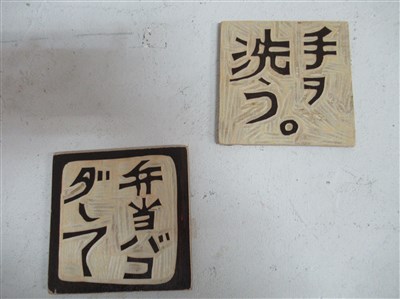 手ヲ
洗う。
弁当バコ
ダして